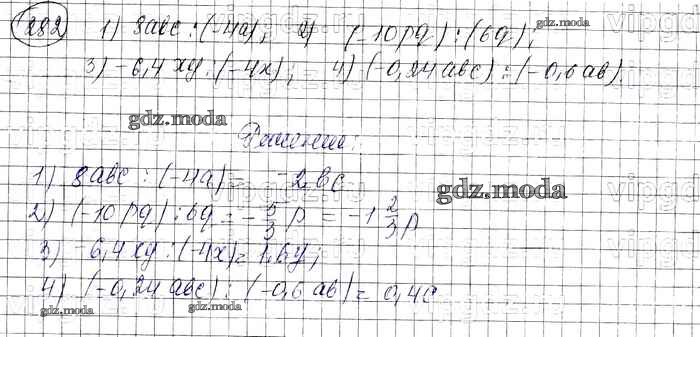 282 1) 8abc : (-4a); 2) (-10pq) : (6q);
3) -6,4xy : (-4x); 4) (-0,24abc) : (-0,6ab).
Решение:
1) 8abc : (-4a) = -2bc
2) (-10pq) : 6q = -5/3 p = -1 2/3 p
3) -6,4xy : (-4x) = 1,6y;
4) (-0,24abc) : (-0,6ab) = 0,4c
gdz.moda
gdz.moda
gdz.moda
gdz.moda
gdz.moda